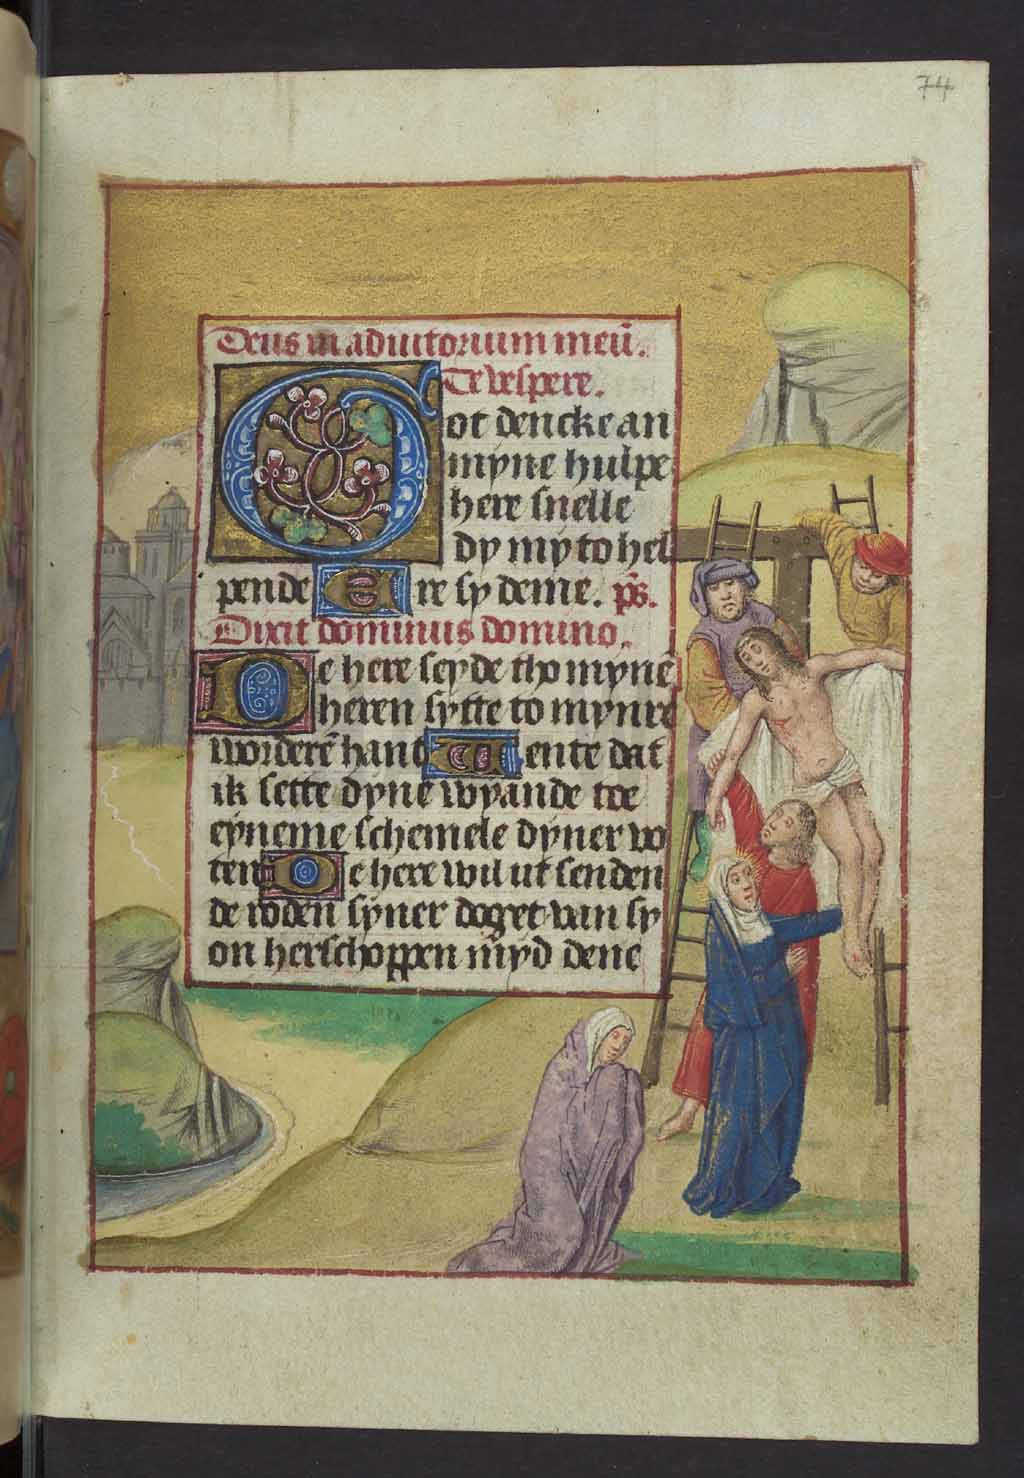 74
Deus in adiutorium meū.
Te vespere.
Got dencke an
myne hulpe
here snelle
dy my to hel
pende Ere sy deme. ps.
Dixit dominus domino.
De here seyde tho mynē
heren sytte to mynre
vorderē hand Wente dat
ik sette dyne vyande toe
eyneme schemele dyner vo
ten De here wil ut senden
de roden syner doget van sy
on herschoppen myd dene